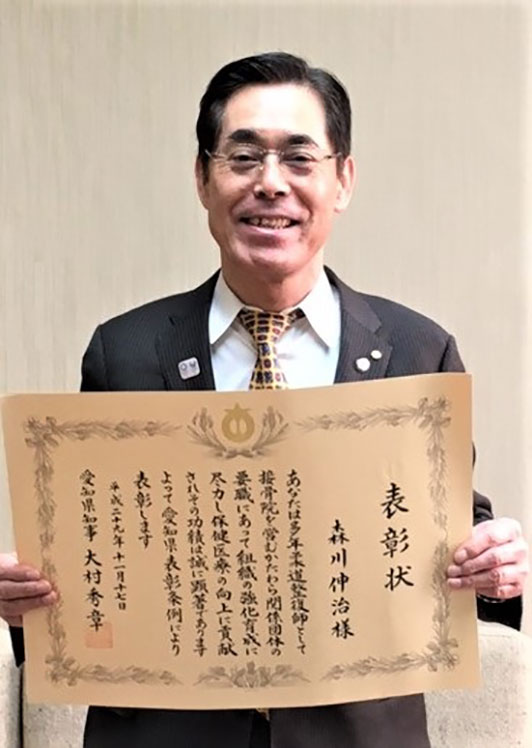 表彰状
森川伸治様
あなたは多年柔道整復師として
接骨院を営むかたわら関係団体の
要職にあって組織の強化育成に
尽力し保健医療の向上に貢献
されその功績は誠に顕著であります
よって愛知県表彰条例により
表彰します
平成二十九年十一月十七日
愛知県知事 大村秀章